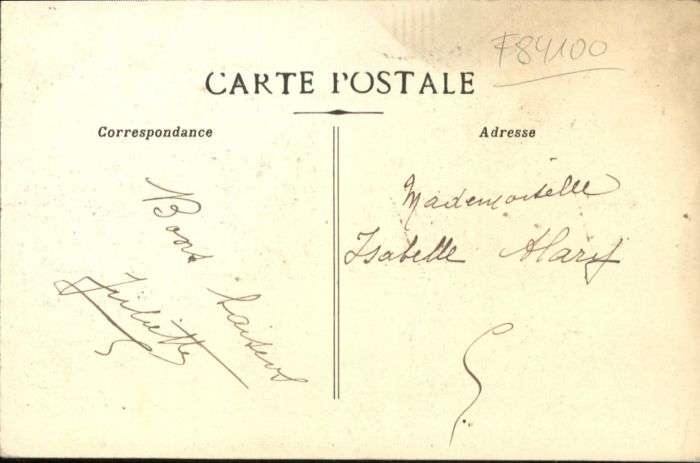 F84100
CARTE POSTALE
Correspondance
Adresse
Bons baisers
Juliette
Mademoiselle
Isabelle